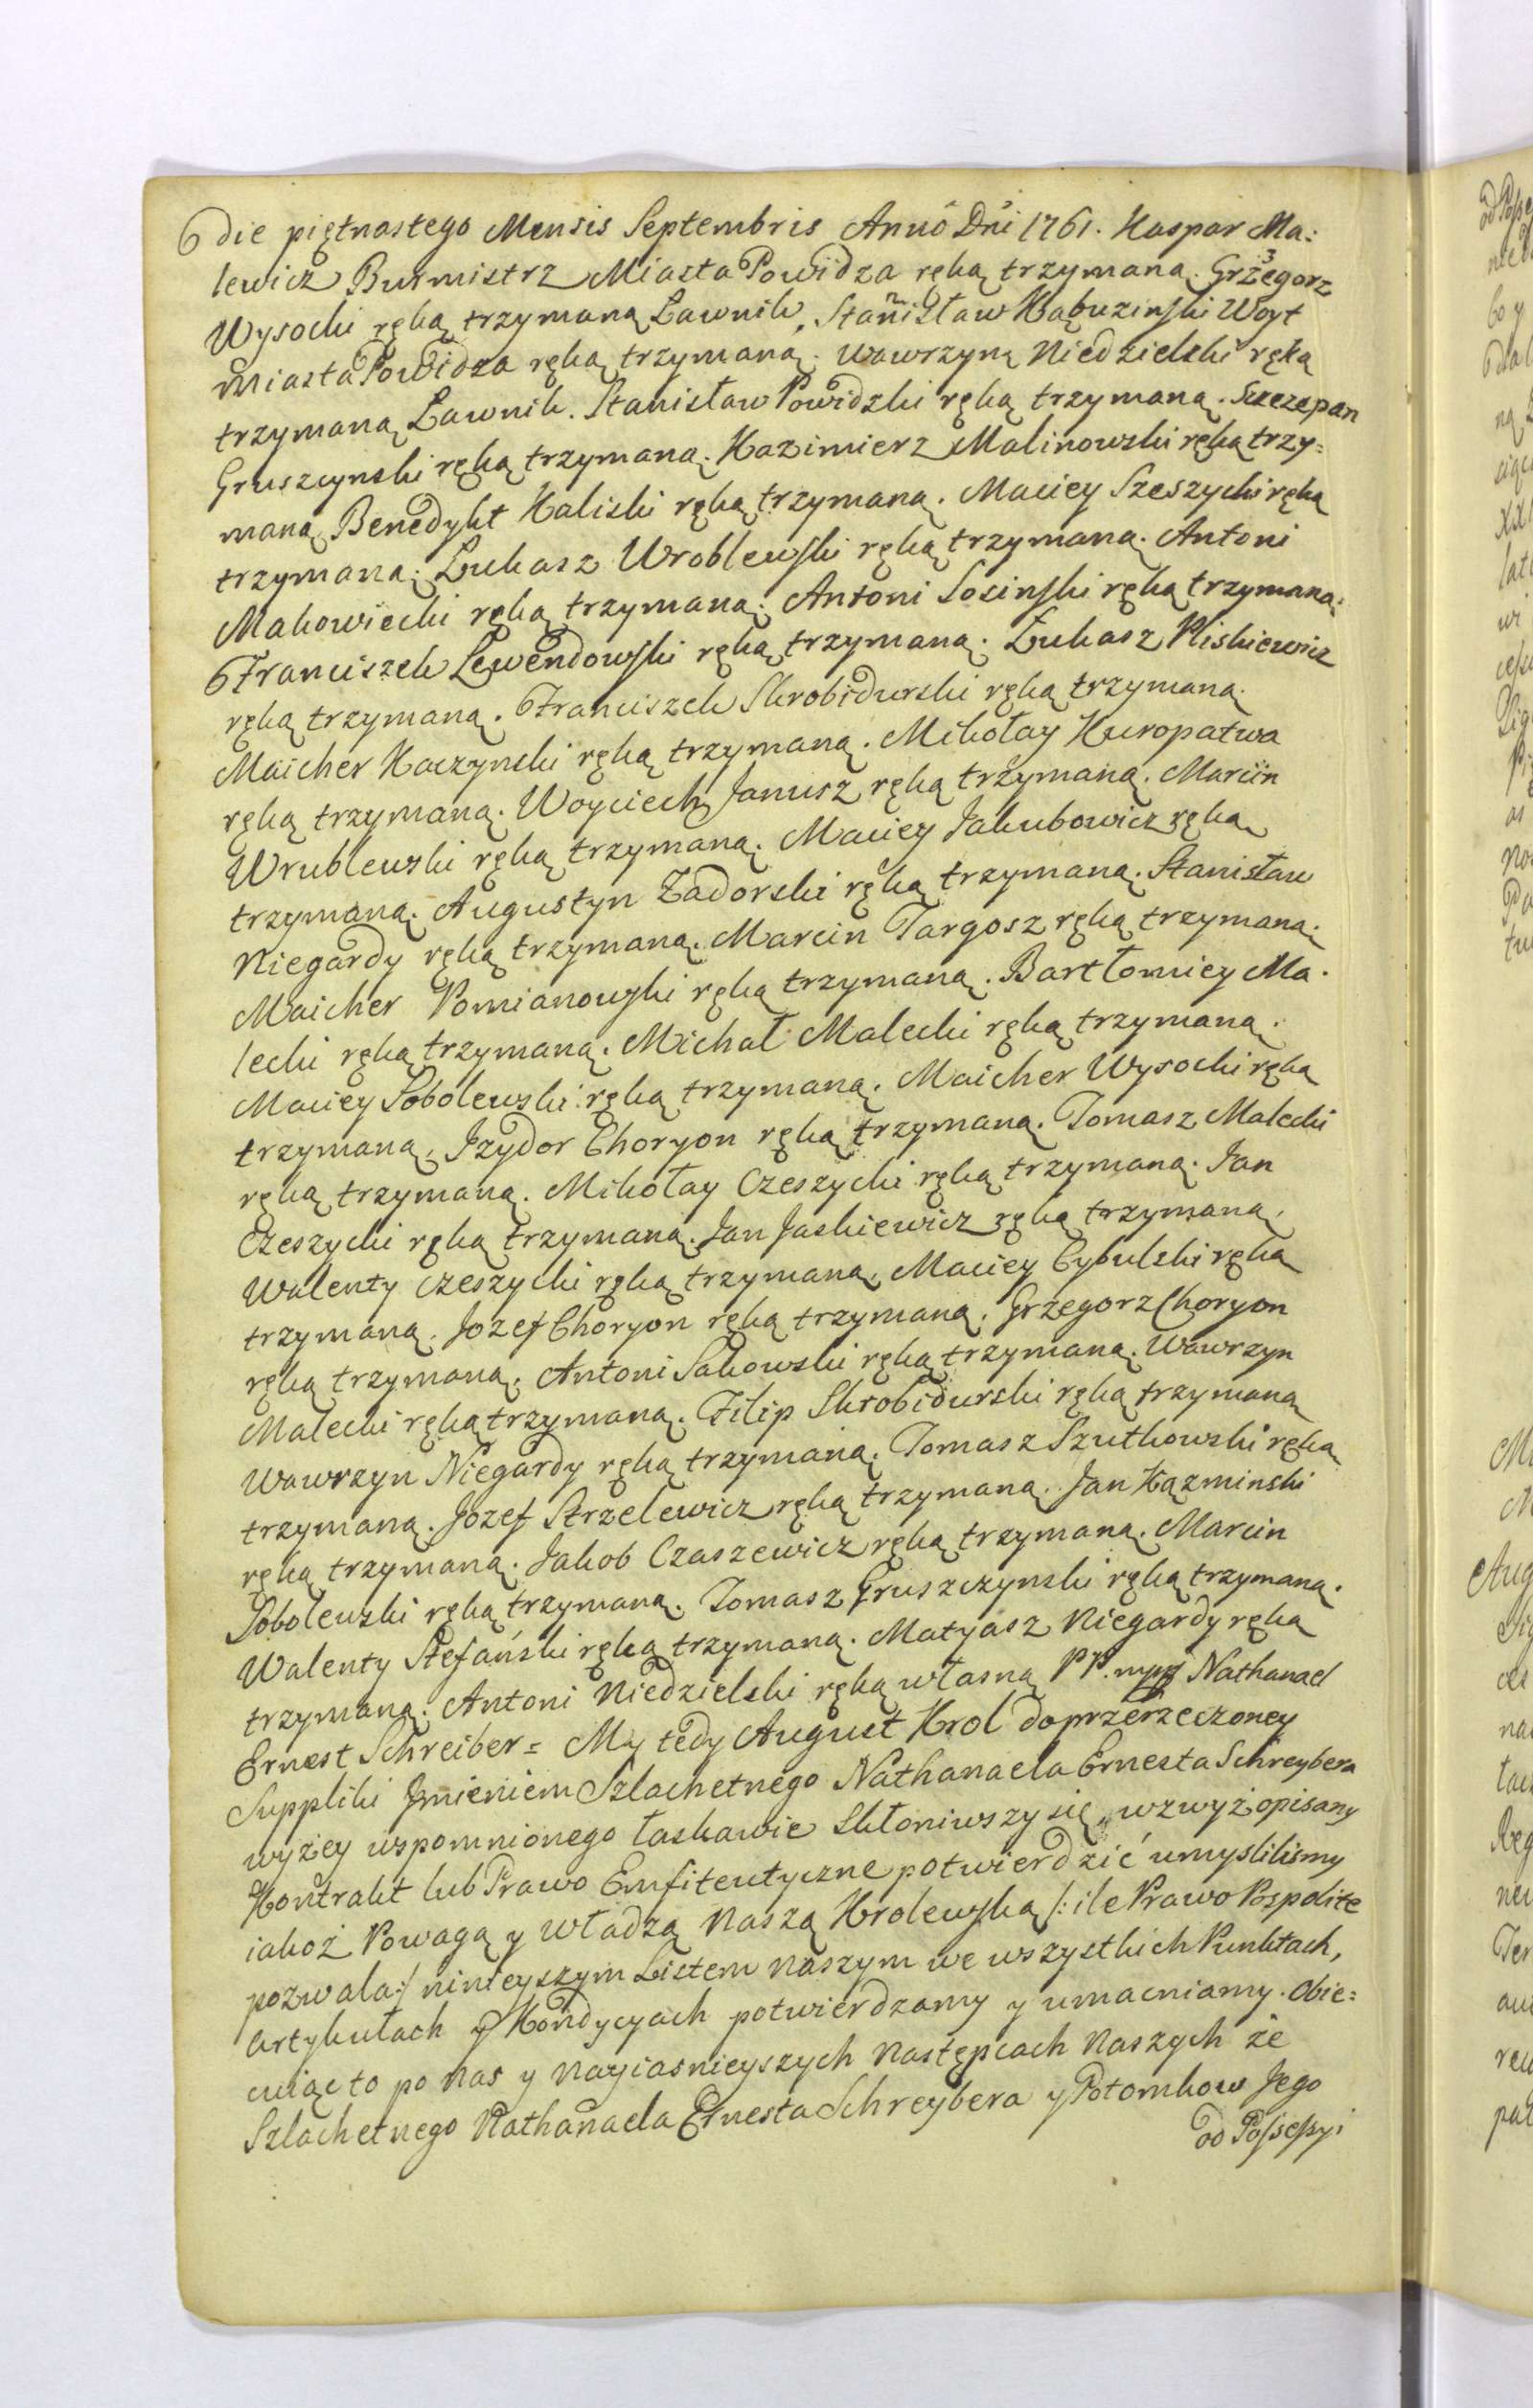 die piętnastego Mensis Septembris Annô Dni 1761. Kaspar Ma:
lewicz Burmistrz Miasta Powidza ręką trzymaną. Grzegorz
Wysocki ręką trzymaną Ławnik, Stanisław Kabuzinski Woyt
Miasta Powidza ręką trzymaną. Wawrzyn Niedzielski ręką
trzymaną Ławnik. Stanisław Powidzki ręką trzymaną. Szczepan
Gruszcynski ręką trzymaną. Kazimierz Malinowski ręką trzy=
maną Benedykt Kaliski ręką trzymaną. Maciey Szeszycki ręką
trzymaną. Łukasz Wroblewski ręką trzymaną. Antoni
Makowiecki ręką trzymaną. Antoni Sosinski ręką trzymaną.
Franciszek Lewendowski ręką trzymaną. Łukasz Kiskiewicz
ręką trzymaną. Franciszek Skrobidurski ręką trzymaną.
Maicher Kaczynski ręką trzymaną. Mikołay Kuropatwa
ręką trzymaną. Woyciech Janusz ręką trzymaną. Marcin
Wrublewski ręką trzymaną. Maciey Jakubowicz ręką
trzymaną. Augustyn Zadorski ręką trzymaną. Stanisław
Niegardy ręką trzymaną. Marcin Targosz ręką trzymaną.
Maicher Pomianowski ręką trzymaną. Bartłomiey Ma.
lecki ręką trzymaną. Michał Malecki ręką trzymaną.
Maciey Sobolewski ręką trzymaną. Maicher Wysocki ręką
trzymaną, Jzydor Choryon ręką trzymaną. Tomasz Malecki
ręką trzymaną. Mikołay Czeszycki ręką trzymaną. Jan
Czeszycki ręką trzymaną. Jan Jaskiewicz ręką trzymaną,
Walenty Czeszycki ręką trzymaną, Maciey Cybulski ręką
trzymaną. Jozef Choryon ręką trzymaną. Grzegorz Choryon
ręką trzymaną. Antoni Sakowski ręką trzymaną. Wawrzyn
Malecki ręką trzymaną. Filip Skrobidurski ręką trzymaną
Wawrzyn Niegardy ręką trzymaną. Tomasz Szutkowski ręką
trzymaną. Jozef Strzelewicz ręką trzymaną. Jan Kazminski
ręką trzymaną. Jakob Czaszewicz ręką trzymaną. Marcin
Sobolewski ręką trzymaną. Tomasz Gruszczynski ręką trzymaną.
Walenty Stefański ręką trzymaną. Matyasz Niegardy ręką
trzymaną. Antoni Niedzielski ręką własną Nathanael
Ernest Schreiber = My tedy August Krol do przerzeczoney
Suppliki Jmieniem Szlachetnego Nathanaela Ernesta Schreybera
wyzey wspomnionego łaskawie skłoniwszy się, wzwyż opisany
Kontrakt lub Prawo Emfiteutyczne potwierdzić umyslilismy
iakoż Powagą y władzą Naszą Krolewską /: ile Prawo Pospolite
pozwala :/ ninieyszym Listem Naszym we wszystkich Punktach,
Artykułach y Kondycyach potwierdzamy y umacniamy. Obie=
cuiąc to po Nas y Nayiasnieyszych Następcach Naszych że
Szlachetnego Nathanaela Ernesta Schreybera y Potomkow Jego
od Possessyi